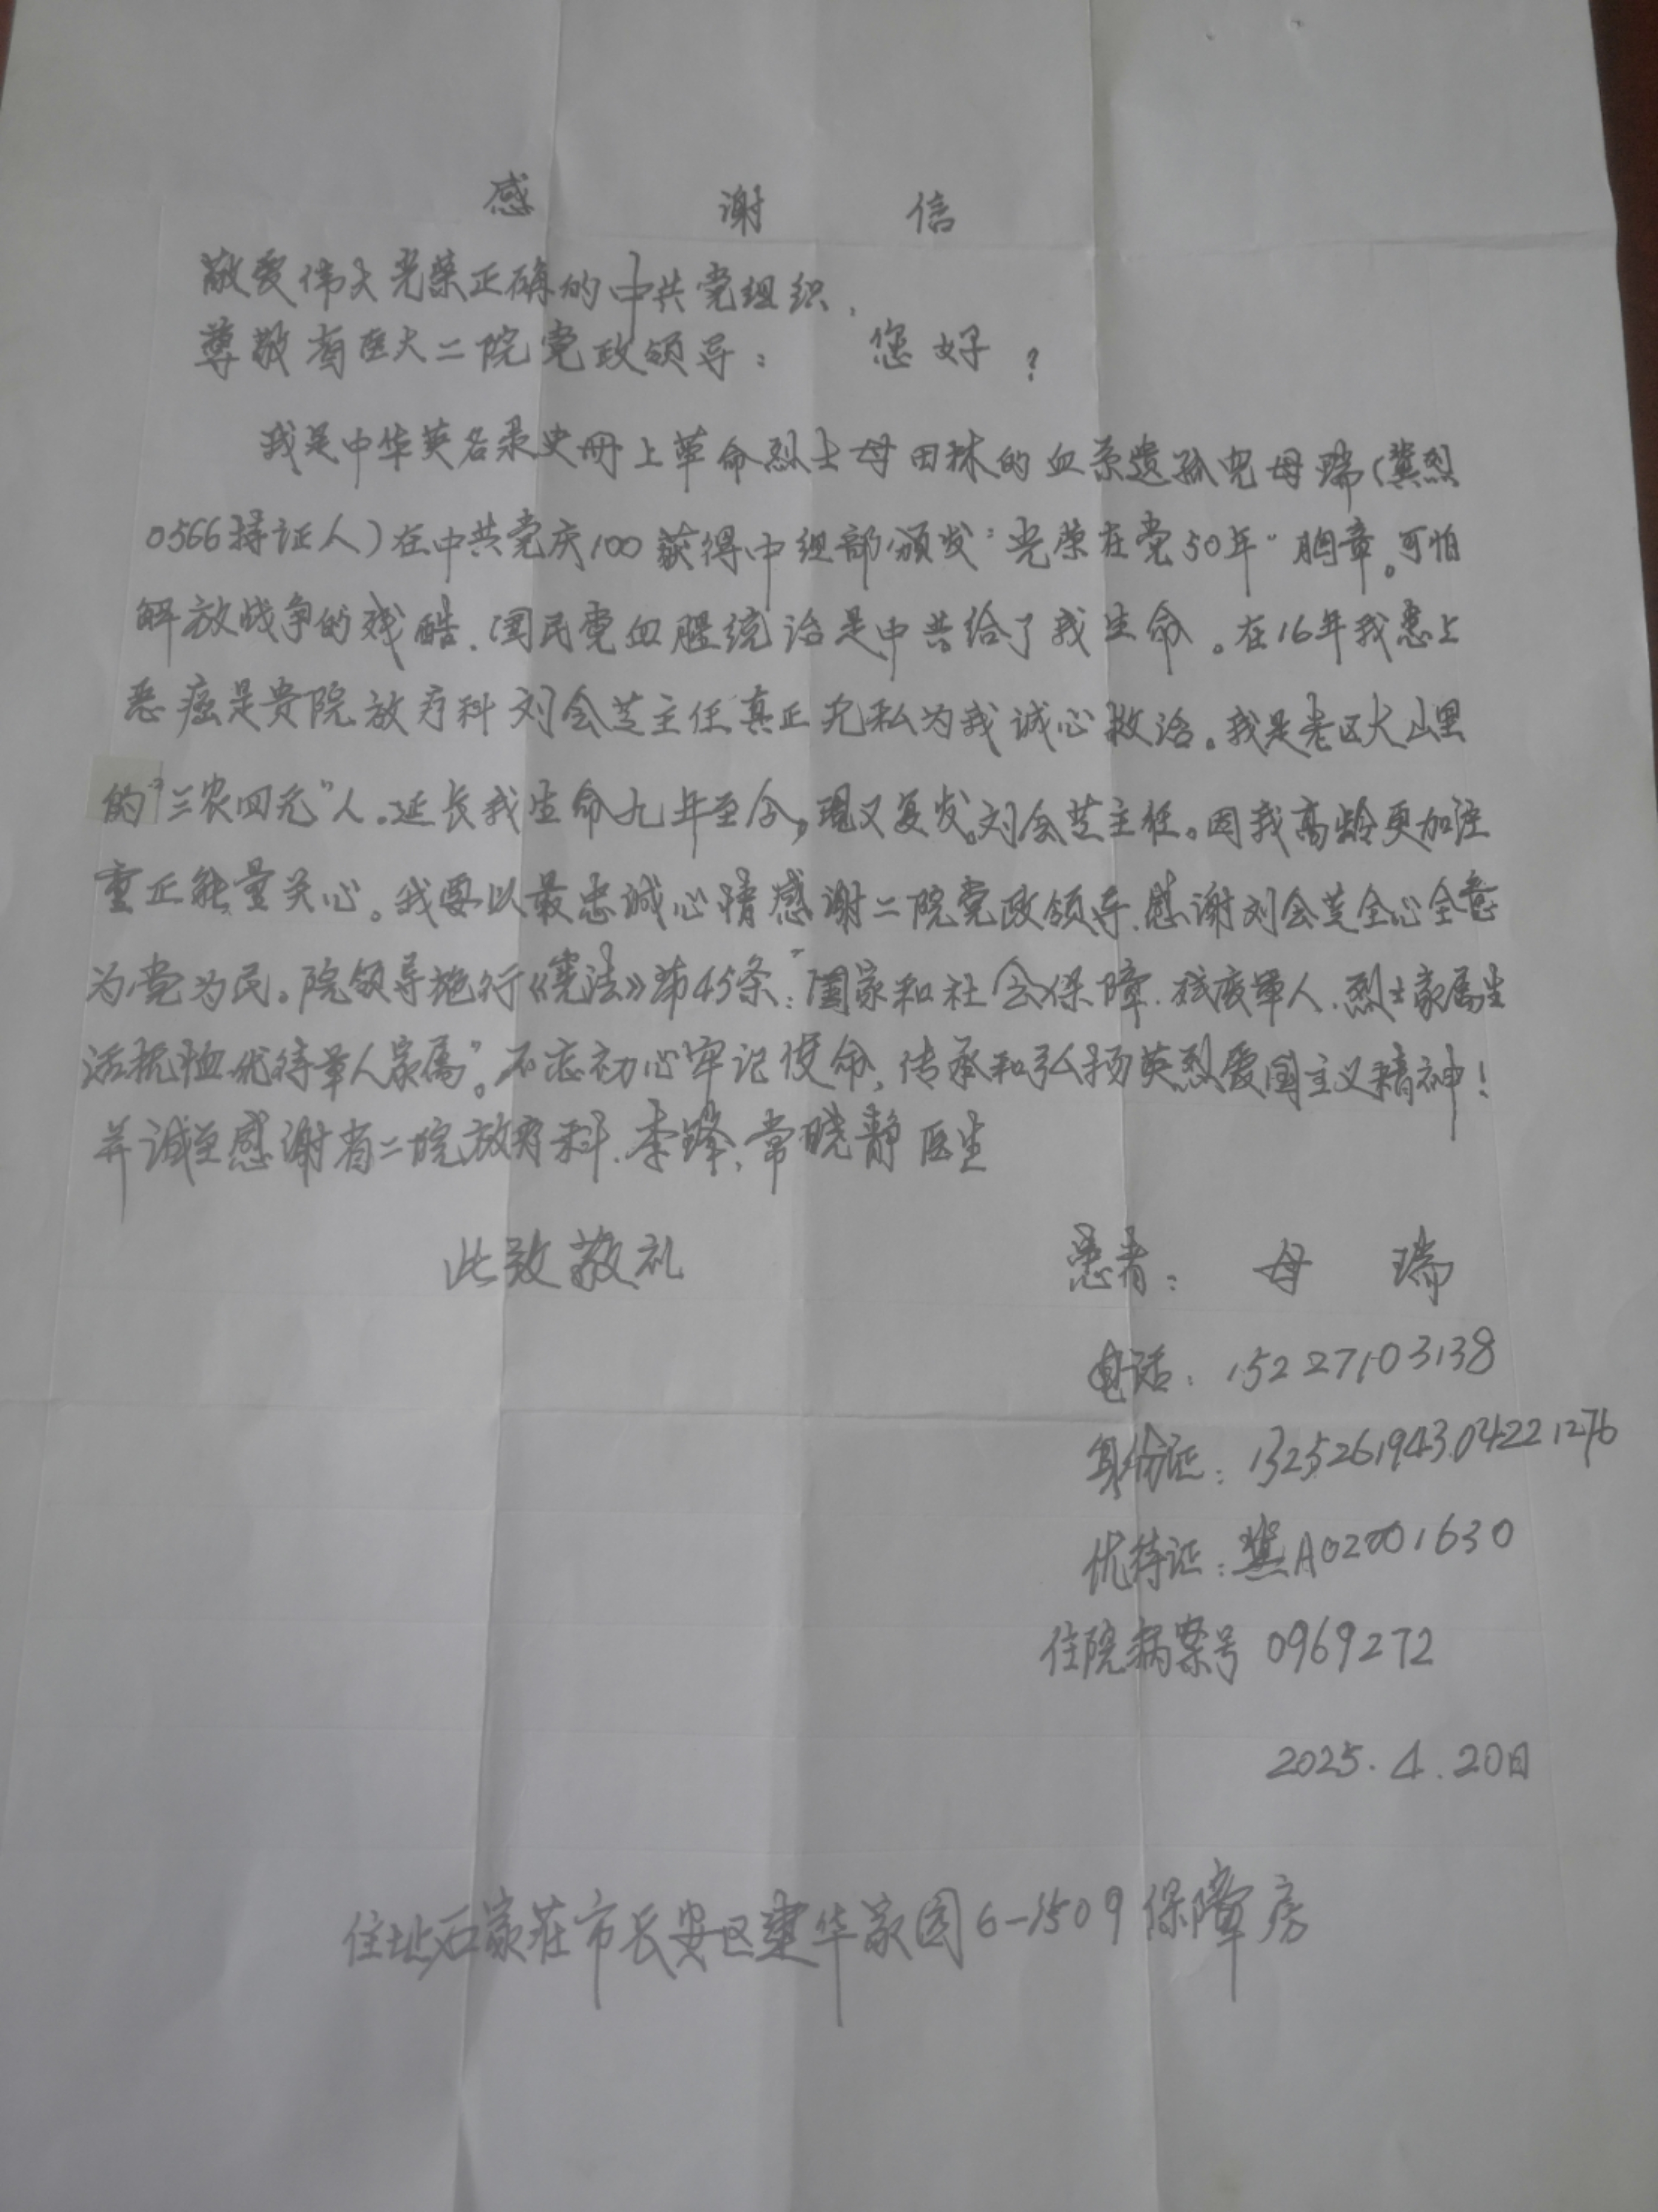 感谢信
敬爱伟大光荣正确的中共党组织.
尊敬省医大二院党政领导: 您好?
我是中华英名录史册上革命烈士母田林的血亲遗孤儿母瑞(冀烈
0566持证人)在中共党庆100获得中组部颁发"光荣在党50年"胸章。可怕
解放战争的残酷.国民党血腥统治是中共给了我生命。在16年我患上
恶癌是贵院放疗科刘会芝主任真正无私为我诚心救治。我是老区大山里
的"三农四无"人。延长我生命九年至今,现又复发。刘会芝主任。因我高龄更加注
重正能量关心。我要以最忠诚心情感谢二院党政领导.感谢刘会芝全心全意
为党为民。院领导施行《宪法》第45条:"国家和社会保障.残废军人.烈士家属生
活抚恤优待军人家属"。不忘初心牢记使命,传承和弘扬英烈爱国主义精神!
并诚至感谢省二院放疗科.李锋,常晓静医生
此致敬礼
患者: 母瑞
电话: 15227103138
身份证: 132526194304221276
优待证: 冀A02001630
住院病案号 0969272
2025.4.20日
住址石家庄市长安区建华家园6-1509保障房